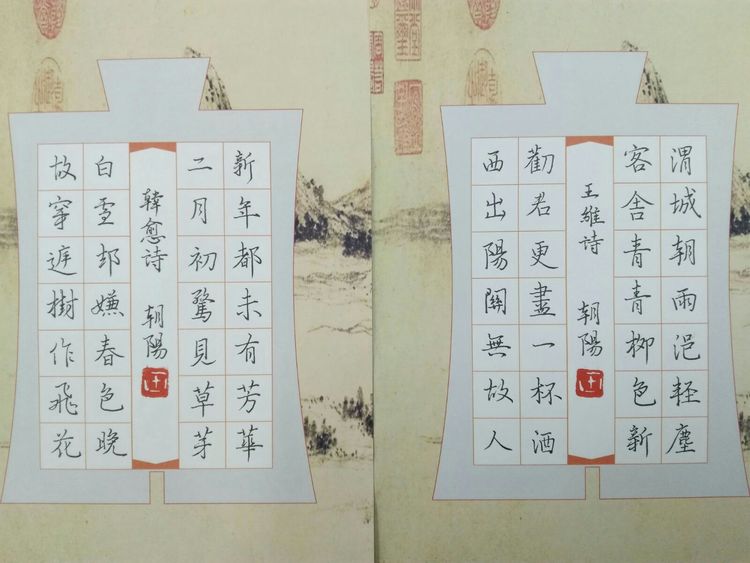 新年都未有芳華
二月初驚見草芽
韓愈诗 朝陽
白雪却嫌春色晚
故穿庭樹作飛花
渭城朝雨浥輕塵
客舍青青柳色新
王維诗 朝陽
勸君更盡一杯酒
西出陽關無故人